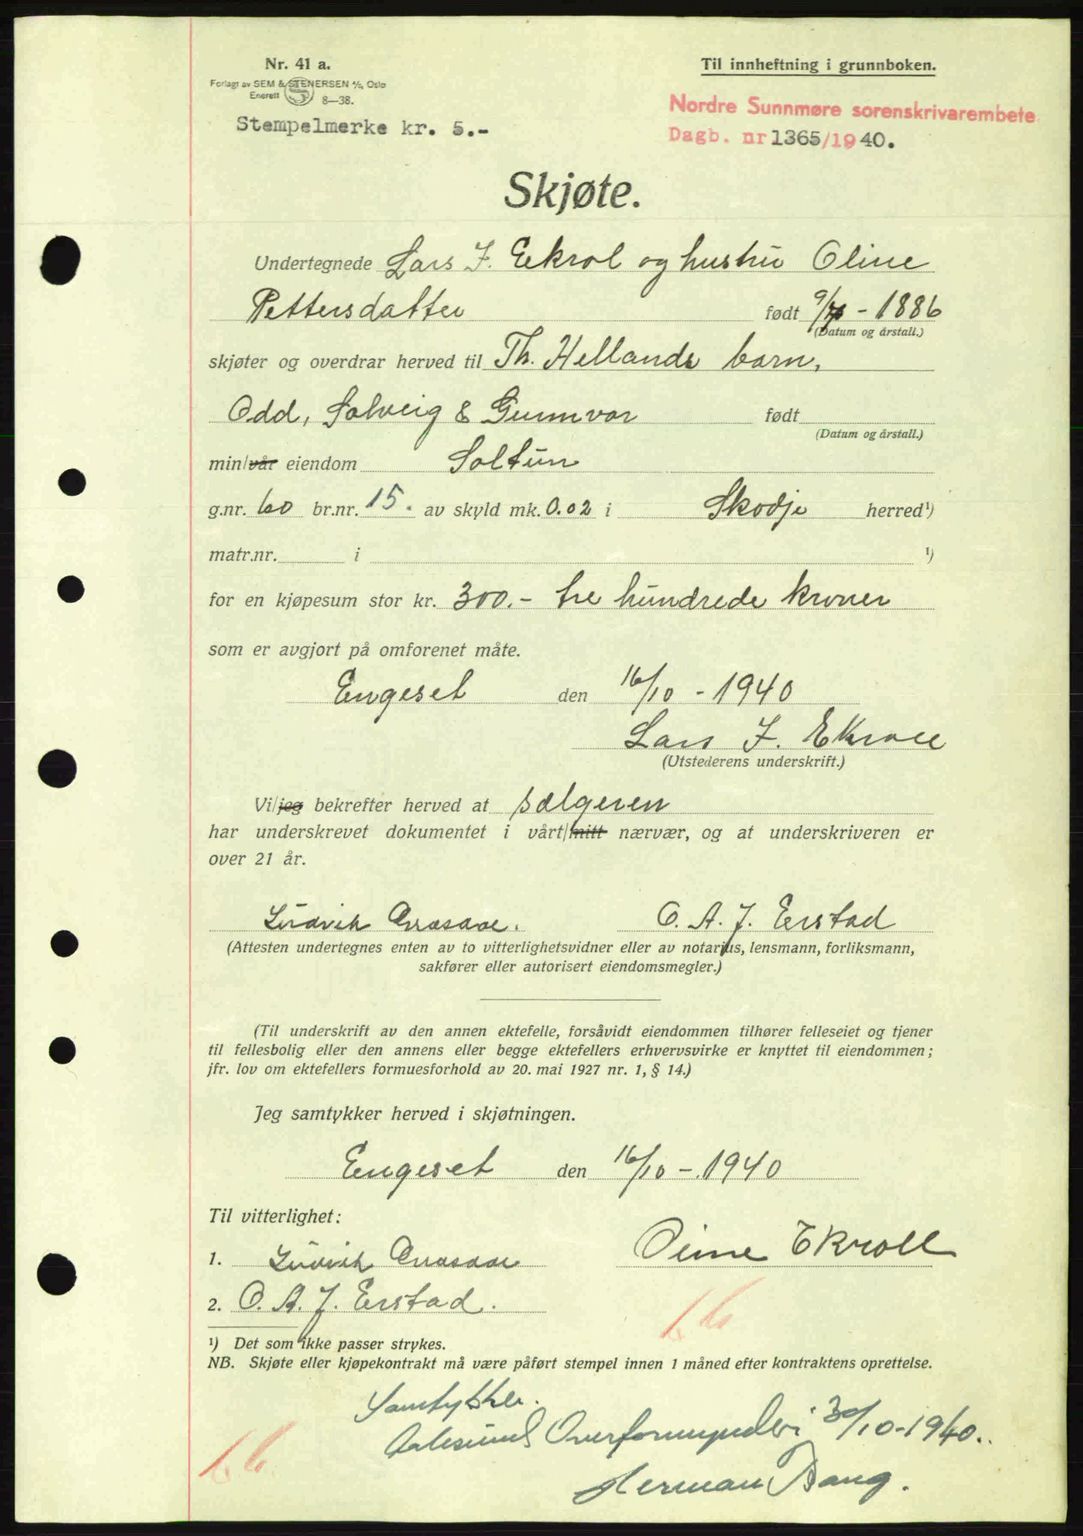 Nr. 41 a.
Forlagt av SEM & STENERSEN A/S, Oslo
Enerett 8—38.
Stempelmerke kr. 5.-
Til innheftning i grunnboken.
Nordre Sunnmøre sorenskrivarembete
Dagb. nr 1365/1940.
Skjøte.
Undertegnede Lars J. Ekrol og hustru Oline
Pettersdatter født 9/ - 1886
(Datum og årstall.)
skjøter og overdrar herved til Th. Hellands barn,
Odd, Solveig & Gunnvor født
(Datum og årstall.)
min/vår eiendom Soltun
g.nr. 60 br.nr. 15. av skyld mk. 0.02 i Skodje herred¹)
matr.nr. i ¹)
for en kjøpesum stor kr. 300.- tre hundrede kroner
som er avgjort på omforenet måte.
Engeset den 16/10 - 1940
Lars J. Ekroll
(Utstederens underskrift.)
Vi/jeg bekrefter herved at sælgeren
har underskrevet dokumentet i vårt/mitt nærvær, og at underskriveren er
over 21 år.
Ludvik O. A. J. Erstad
(Attesten undertegnes enten av to vitterlighetsvidner eller av notarius, lensmann, forliksmann,
sakfører eller autorisert eiendomsmegler.)
(Til underskrift av den annen ektefelle, forsåvidt eiendommen tilhører felleseiet og tjener
til fellesbolig eller den annens eller begge ektefellers erhvervsvirke er knyttet til eiendommen;
jfr. lov om ektefellers formuesforhold av 20. mai 1927 nr. 1, § 14.)
Jeg samtykker herved i skjøtningen.
Engeset den 16/10 - 1940
Til vitterlighet:
Oline Ekroll
1. Ludvik
2. O. A. J. Erstad.
¹) Det som ikke passer strykes.
NB. Skjøte eller kjøpekontrakt må være påført stempel innen 1 måned efter kontraktens oprettelse.
Samtykkes.
Aalesund Overformynderi 30/10-1940.
Herman Bang.